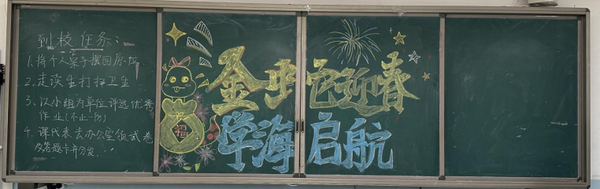 到校任务：
1、将个人桌子摆回原位
2、走读生打扫卫生
3、以小组为单位评选优秀
作业(不止一份)
4、课代表去办公室领试卷
及答题卡并分发.
金蛇迎春
学海启航
福